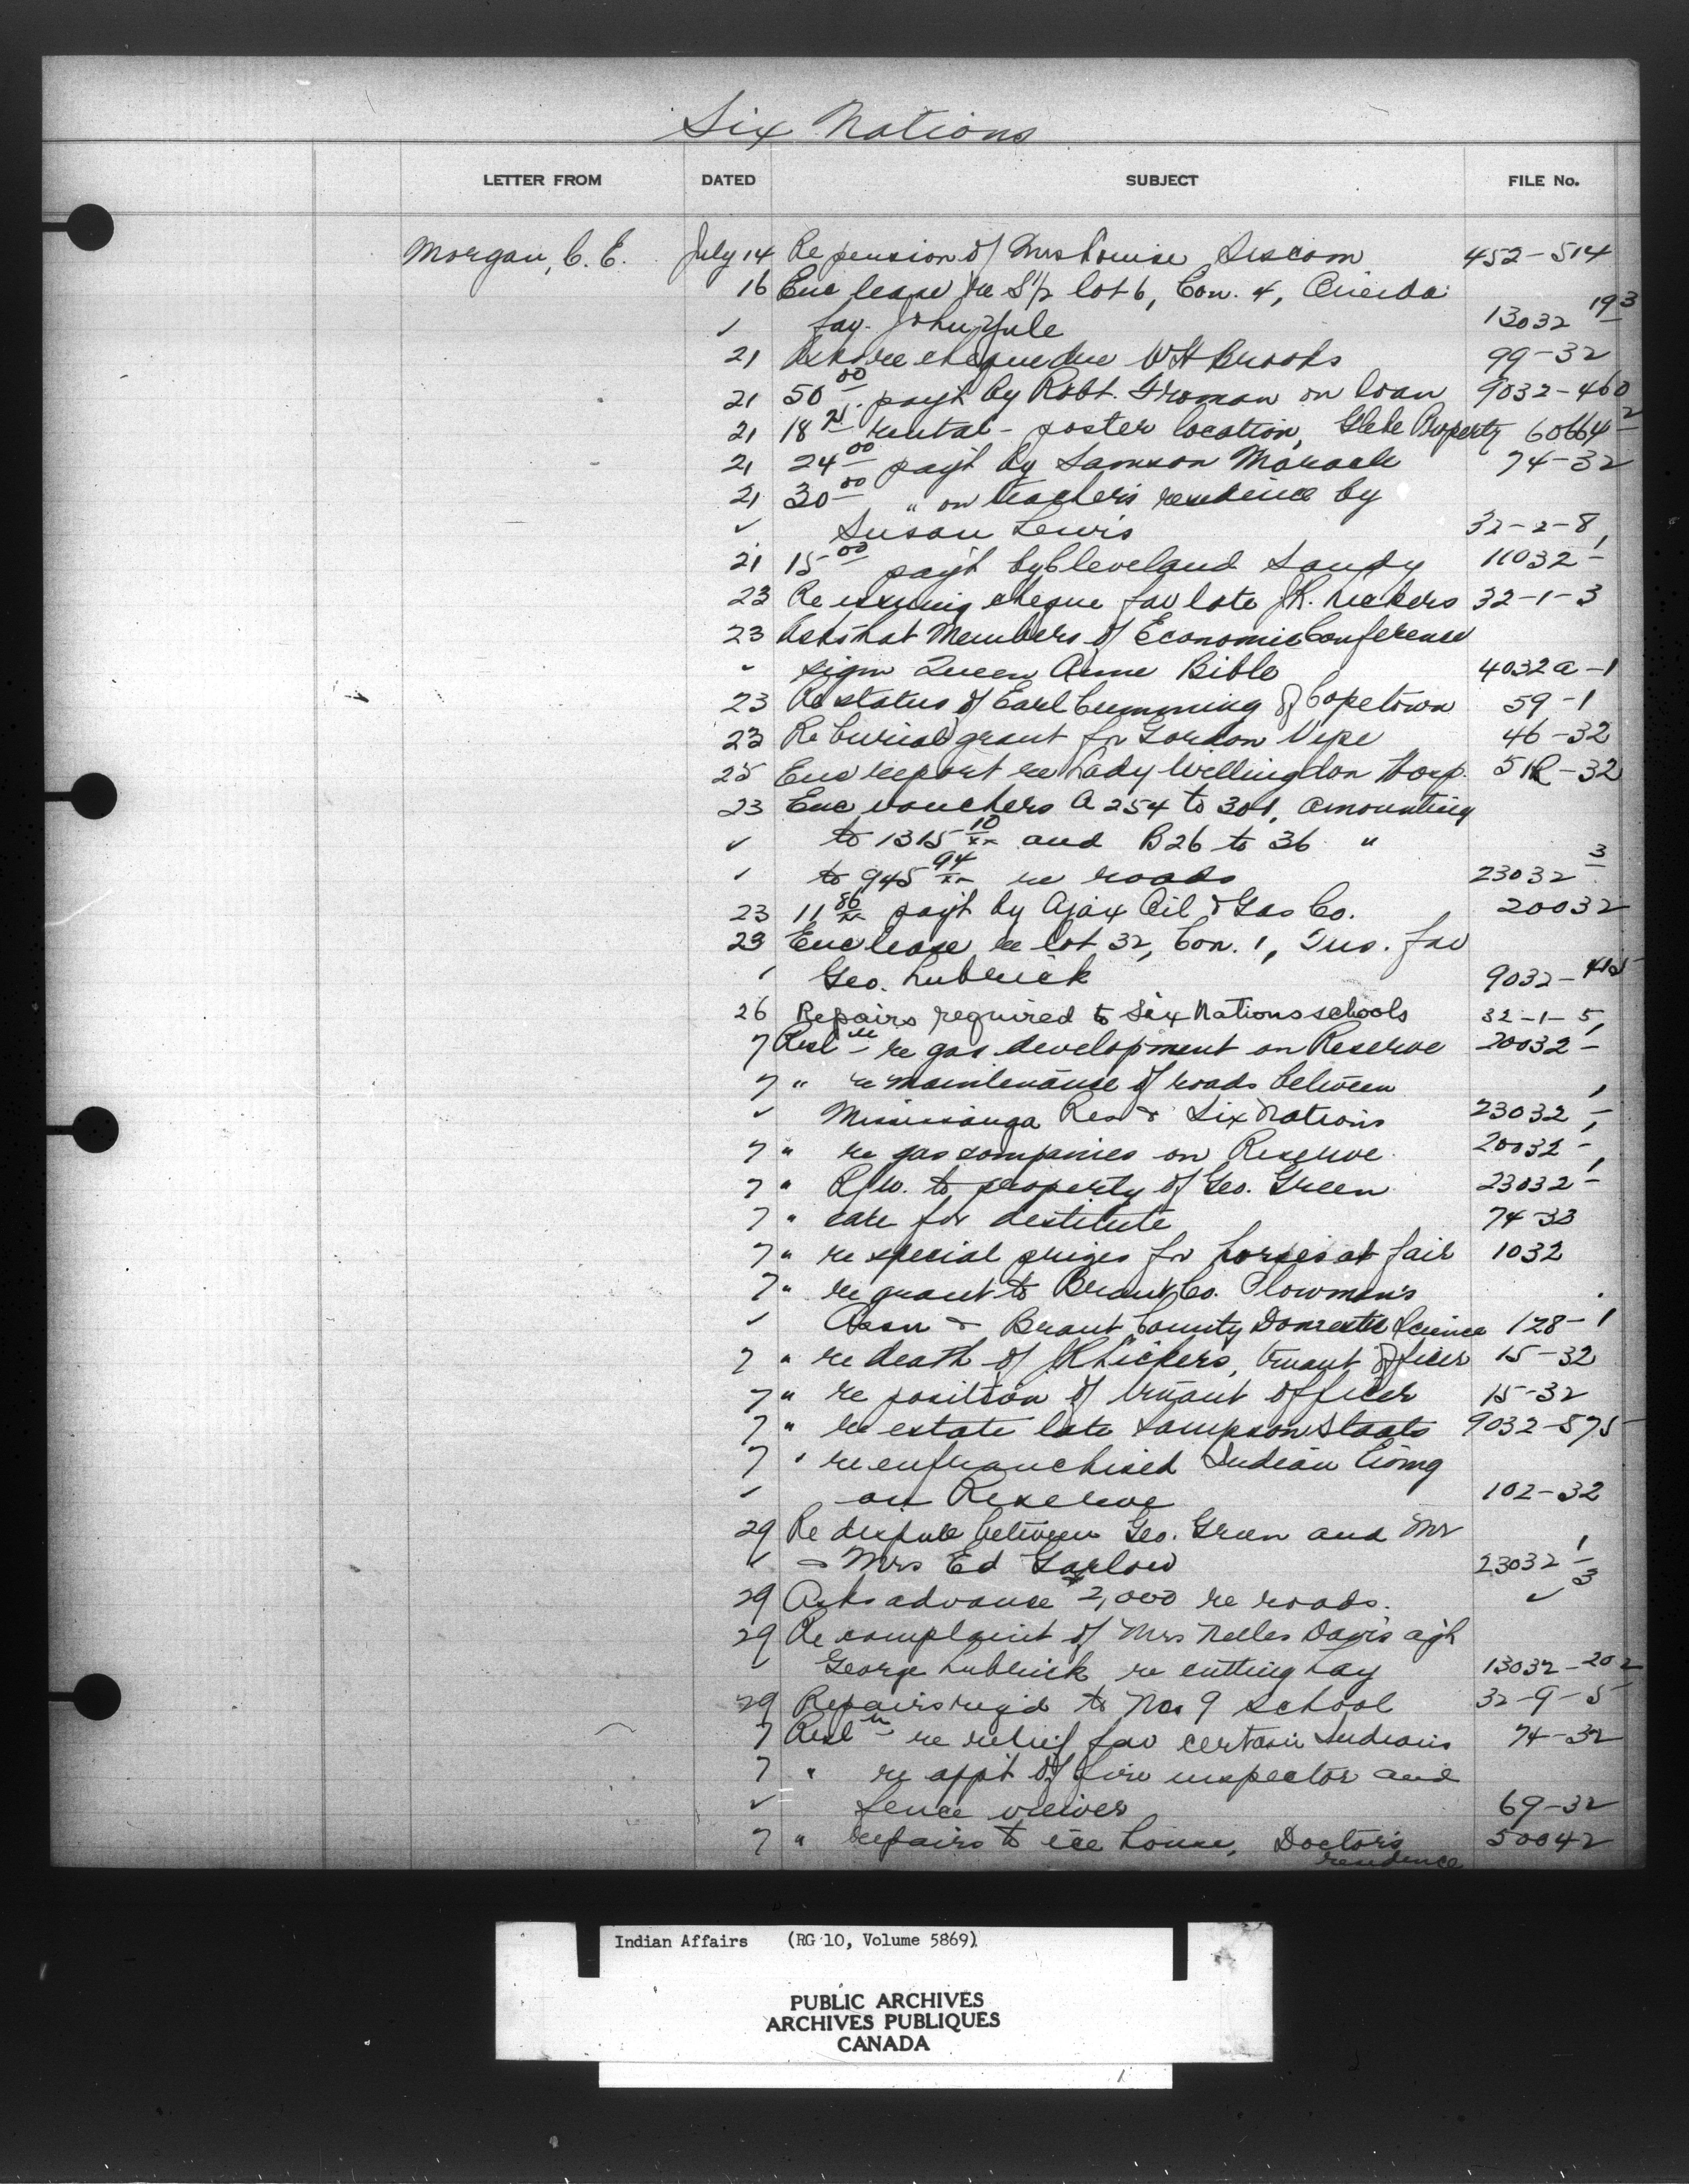 Six Nations
LETTER FROM DATED SUBJECT FILE No.
Morgan, C. E. July 14 Re pension of Mrs Louise Sescom 452-514
16 Enc lease re S½ lot 6, Con. 4, Oneida
✓ fav. John Yule 13032 19 3
21 Asks re cheque due W H Brooks 99-32
21 50 00 pay't by Robt. Froman on loan 9032-460
21 18 rental - poster location, Glebe Property 60664 2
21 24 00 pay't by Samson Maracle 74-32
21 30 00 " on teacher's residence by
✓ Susan Lewis 32-2-8
21 15 00 pay't by Cleveland Sandy 11032-1
23 Re issuing cheque fav late J R. Lickers 32-1-3
23 Asks that Members of Economic Conference
✓ sign Queen Anne Bible 4032a-1
23 Re status of Earl Cumming of Copetown 59-1
23 Re burial grant for Gordon Vyse 46-32
25 Enc report re Lady Willingdon Hosp. 51R-32
23 Enc vouchers A 254 to 301, amounting
✓ to 1315 10/xx and B26 to 36 "
✓ to 945 94/xx re roads 23032 3
23 11 86/xx pay't by Ajax Oil & Gas Co. 20032
23 Enc lease re lot 32, Con. 1, Tus. fav
✓ Geo. Lubrick 9032-415
26 Repairs required to Six Nations schools 32-1-5
7 Resl re gas development on Reserve 20032-1
7 " re maintenance of roads between
✓ Mississauga Res & Six Nations 23032 1
7 " re gas companies on Reserve 20032-1
7 " R/W. to property of Geo. Green 23032-1
7 " care for destitute 74-33
7 " re special prizes for horses at fair 1032
7 " re grant to Brant Co. Plowman's
✓ Assn & Brant County Domestic Science 128-1
7 " re death of J R Lickers, truant officer 15-32
7 " re position of truant officer 15-32
7 " re estate late Sampson Staats 9032-575
7 " re enfranchised Indian living
✓ on Reserve 102-32
29 Re dispute between Geo. Green and Mr
✓ & Mrs Ed Garlow 23032 1
29 Asks advance $2,000 re roads. ✓ 3
29 Re complaint of Mrs Nelles Davis ag'h
✓ George Lubrick re cutting hay 13032-202
29 Repairs req'd to No. 9 school 32-9-5
7 Resl re relief fav certain Indians 74-32
7 " re app't of fire inspector and
✓ fence viewer 69-32
7 " repairs to ice house, Doctor's 50042
residence
Indian Affairs (RG 10, Volume 5869)
PUBLIC ARCHIVES
ARCHIVES PUBLIQUES
CANADA